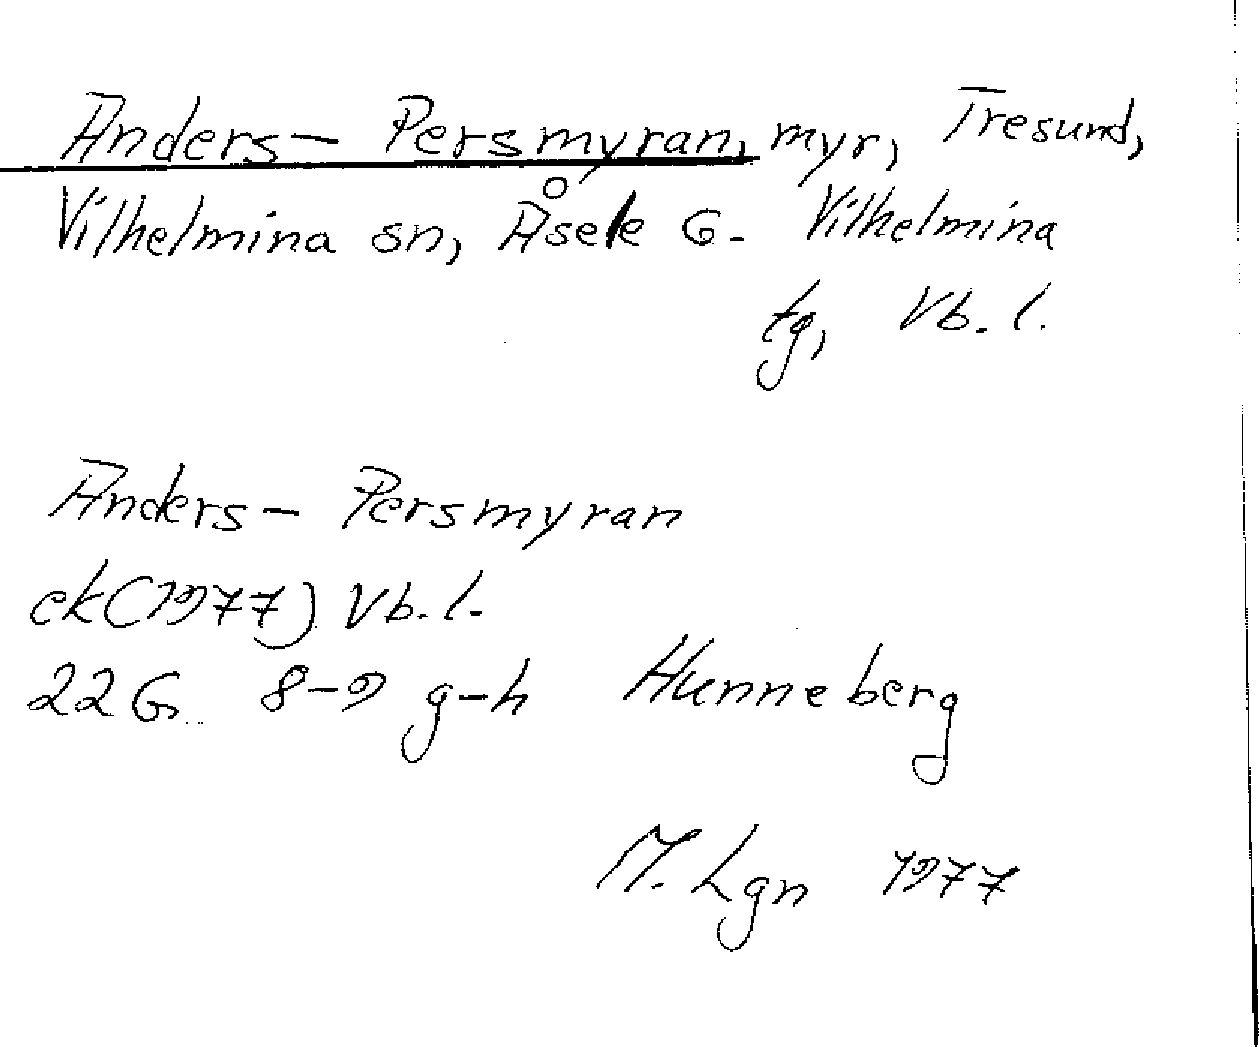 Anders- Persmyran, myr, Tresund,
Vilhelmina sn, Åsele G. Vilhelmina
tg, Vb. l.
Anders- Persmyran
ek(1977) Vb. l.
22G 8-9 g-h Hunneberg
M. Lgn 1977